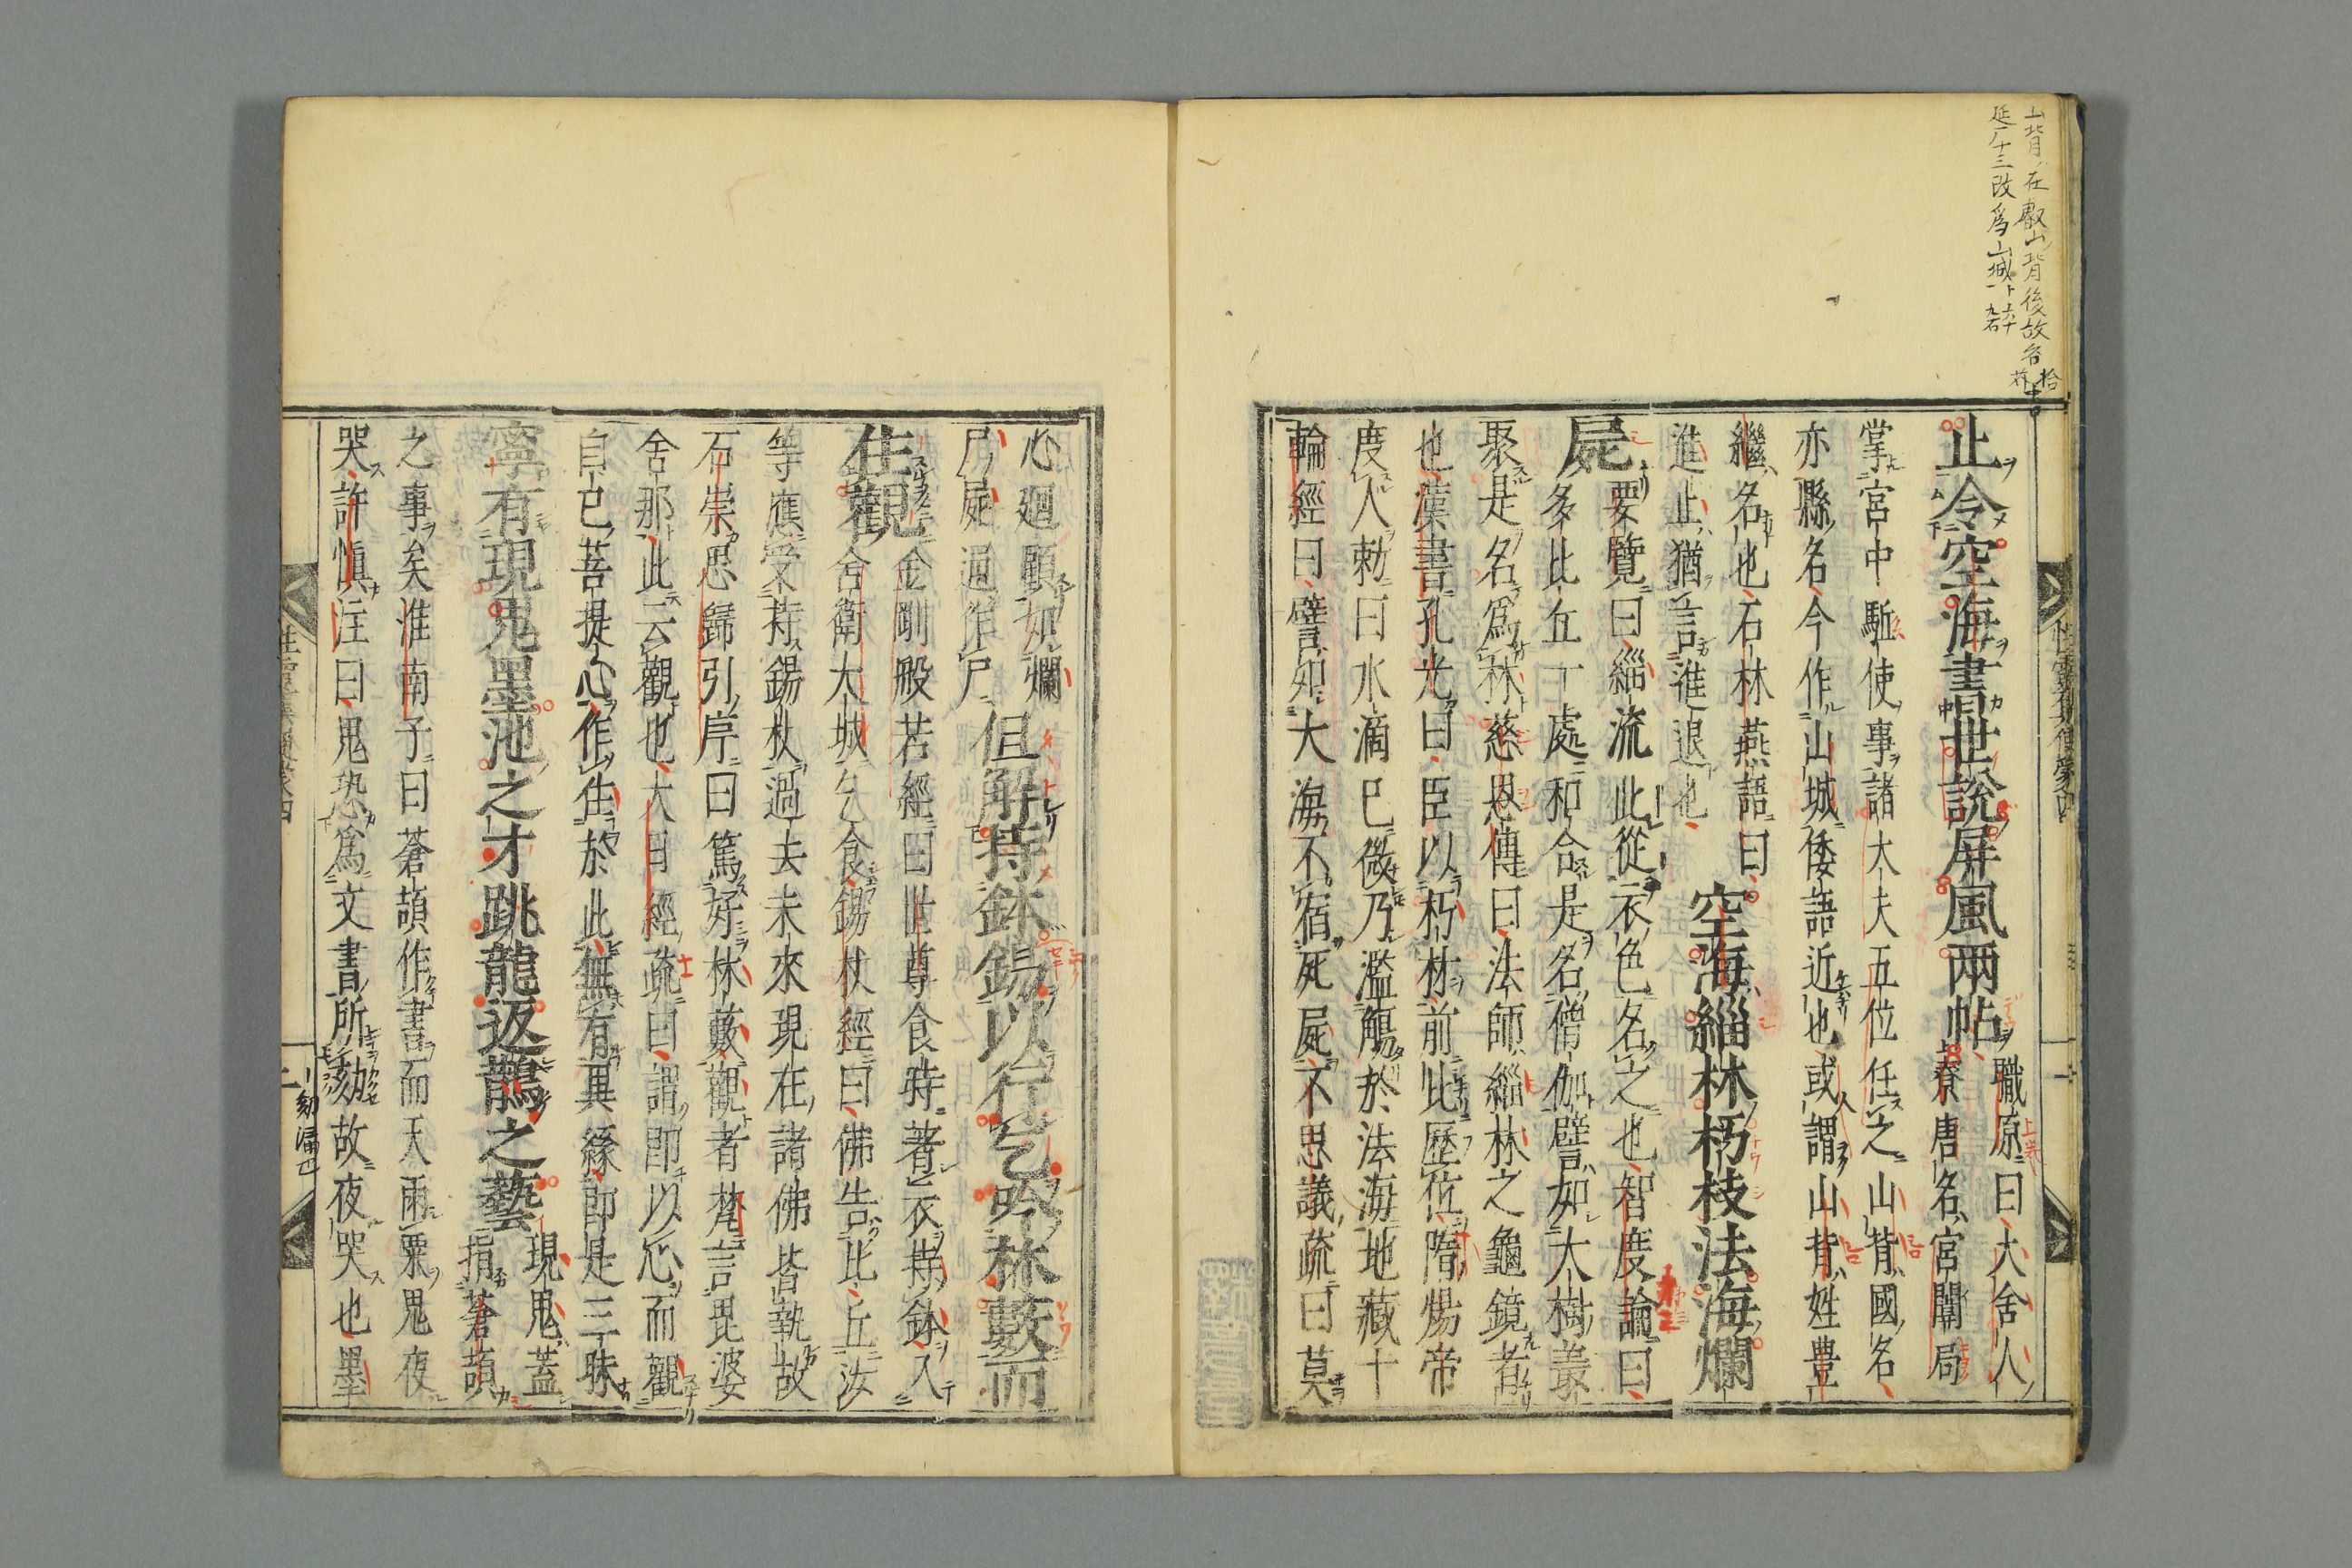 止令空海書世説屏風両帖
職原曰大舍人
寮唐名宮闈局
掌宮中駈使事諸大夫五位任之山背國名
亦縣名今作山城倭語近也或謂山背姓豊
繼名也石林燕語曰
進止猶言進退也
空海緇林朽枝法海爛
屍
要覽曰緇流此從衣色名之也智度論曰
多比丘一處和合是名僧伽譬如大樹叢
聚是名爲林慈恩傳曰法師緇林之龜鏡者
也漢書孔光曰臣以朽材前比歷位隋煬帝
度人勅曰水滴已微乃濫觴於法海地藏十
輪經曰譬如大海不宿死屍不思議疏曰莫
心廻顧如爛
尸屍通作尸
但解持鉢錫以行乞吟林藪而
住觀
金剛般若經曰世尊食時著衣持鉢入
舍衛大城乞食錫杖經曰佛告比丘汝
等應受持錫杖過去未來現在諸佛皆執故
石崇思歸引序曰篤好林藪觀者梵言毘婆
舍那此云觀也大日經疏曰謂即以心而觀
自己菩提心作住於此無有異緣即是三昧
寧有現鬼墨池之才跳龍返鵲之藝
現鬼蓋
指蒼頡
之事矣淮南子曰蒼頡作書而天雨粟鬼夜
哭許慎注曰鬼恐爲文書所劾故夜哭也墨
山背在叡山背後故名
延厂十三改爲山城